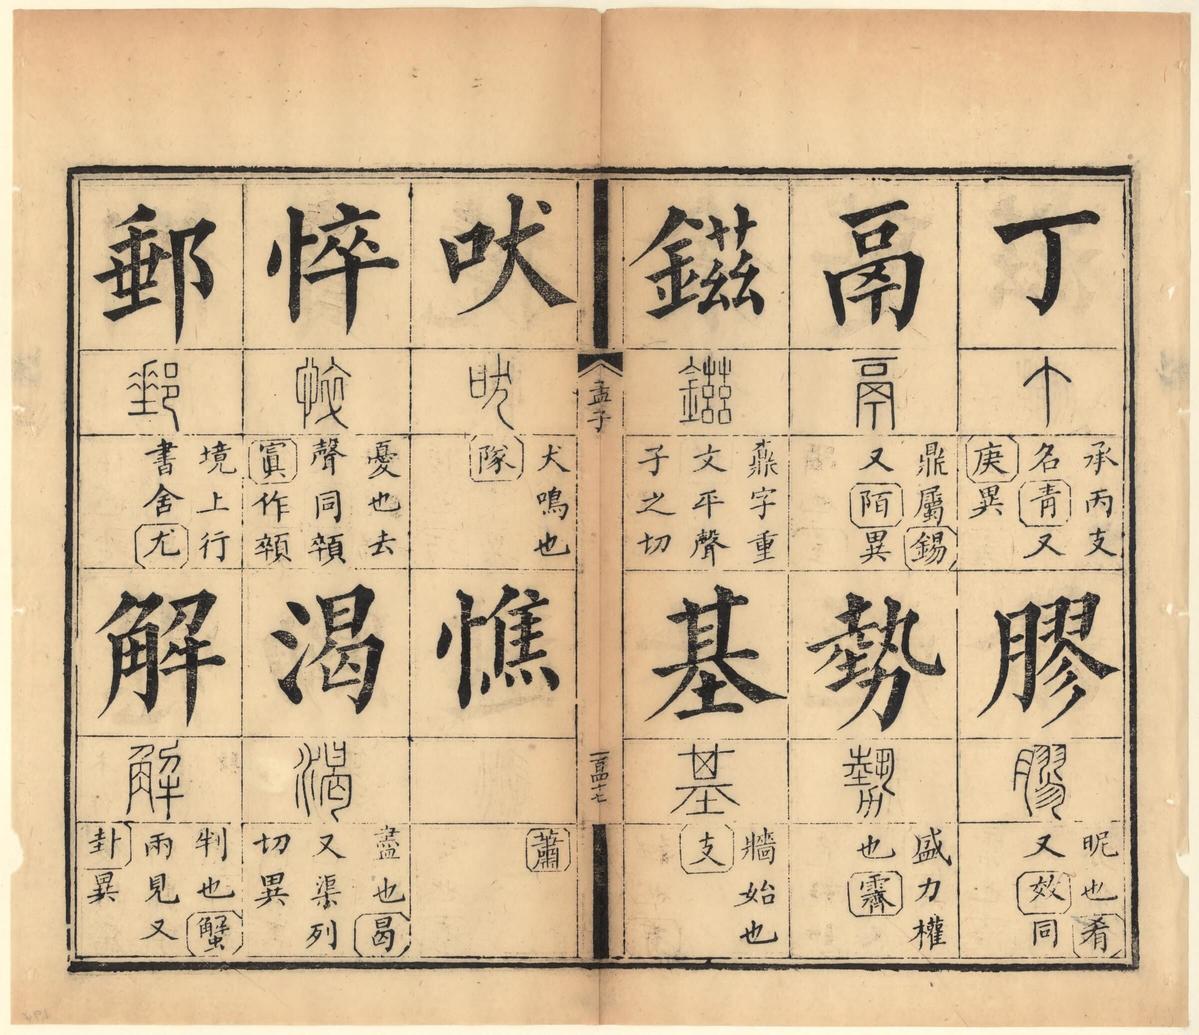 丁
丁
承丙支
名青又
庚異
膠
膠
昵也肴
又效同
鬲
鬲
鼎屬錫
又陌異
勢
勢
盛力權
也霽
鎡
鎡
鼒字重
文平聲
子之切
基
基
牆始也
支
孟子
百四十七
吠
吠
犬鳴也
隊
憔
蕭
悴
悴
憂也去
聲同顇
寘作顇
渴
渴
盡也曷
又渠列
切異
郵
郵
境上行
書舍尤
解
解
判也蟹
兩見又
卦異